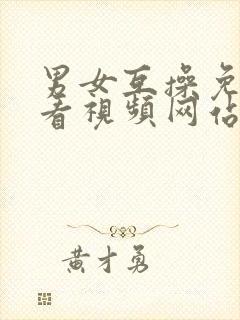 男女互操免
看視頻网佔
黄才勇